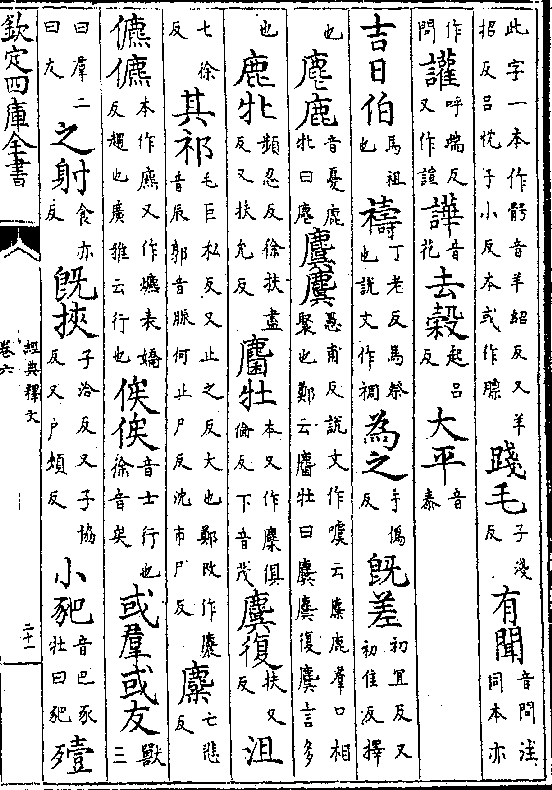 此字一本作音羊紹反又羊招反吕忱于小反本或作膘踐毛子淺反有聞音問注同本亦
作問讙呼端反又作諠譁音花去穀起吕反大平音泰
吉日伯馬祖也禱丁老反馬祭也說文作禂為之于偽反既差初宜反又初佳反擇
也麀鹿音憂鹿牝曰麀麌麌愚甫反說文作噳云麋鹿羣口相聚也鄭云麕牡曰麌麌復麌言多
也鹿牝頻忍反徐扶盡反又扶允反麕牡本又作麇俱倫反下音茂麌復扶又反沮
七徐反其祁毛巨私反又止之反大也鄭改作麎音辰郭音脤何止尸反沈市尸反麋亡悲反
儦儦本作麃又作表嬌反趨也廣雅云行也俟俟音士行也徐音矣或羣或友獸三
曰羣二曰友之射食亦反既挾子洽反又子協反又戶頰反小豝音巴豕牡曰豝殪
欽定四庫全書
經典釋文
卷六
二十一